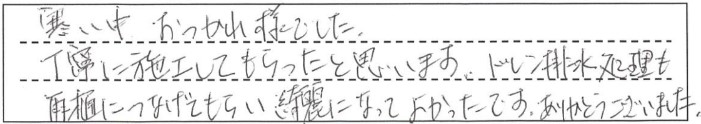 寒い中 おつかれ様でした。
丁寧に施工してもらったと思います。ドレン排水処理も
雨樋につなげてもらい綺麗になってよかったです。ありがとうございました。